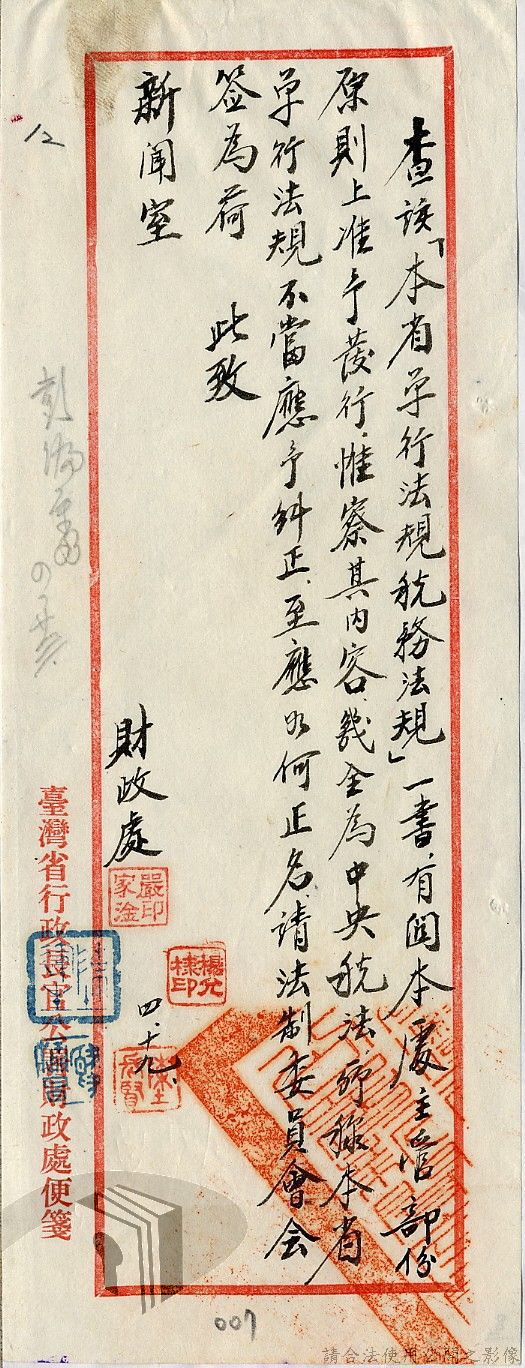 查該「本省单行法規稅務法規」一書有関本處主管部份
原則上准予發行.惟察其內容、幾全為中央稅法、所稱本省
单行法規不當應予糾正、至應如何正名、請法制委員會会
签為荷　此致
新聞室
財政處
嚴印家淦
四.十九、
12
臺灣省行政長官公署財政處便箋
007
請合法使用公開之影像